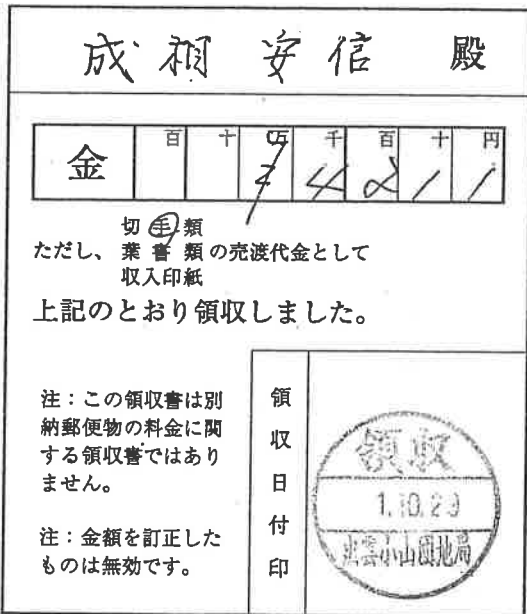 成相安信 殿
百 十 万 千 百 十 円
金 4 2 1 1
切手類
ただし、 葉書類の売渡代金として
収入印紙
上記のとおり領収しました。
注：この領収書は別
納郵便物の料金に関
する領収書ではあり
ません。
注：金額を訂正した
ものは無効です。
領収日付印
領収
1.10.29
出雲小山団地局